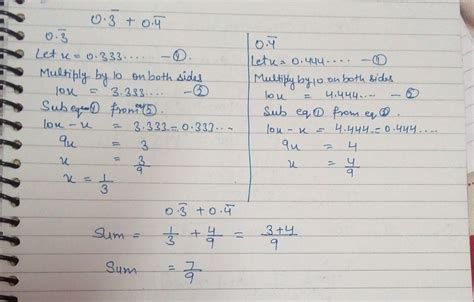 0.3̅ + 0.4̅
0.3̅
Let x = 0.333.... -①.
Multiply by 10 on both sides
10x = 3.333.... -②
Sub eq① from eq②.
10x - x = 3.333 - 0.333...
9x = 3
x = 3/9
x = 1/3
0.4̅
Let x = 0.444.... -①
Multiply by 10 on both sides
10x = 4.444.... -②
Sub eq① from eq②.
10x - x = 4.444 - 0.444....
9x = 4
x = 4/9
0.3̅ + 0.4̅
Sum = 1/3 + 4/9 = 3+4/9
Sum = 7/9